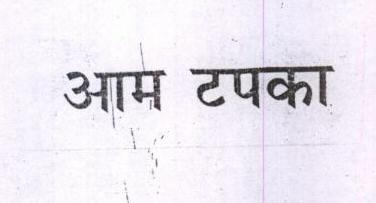 आम टपका